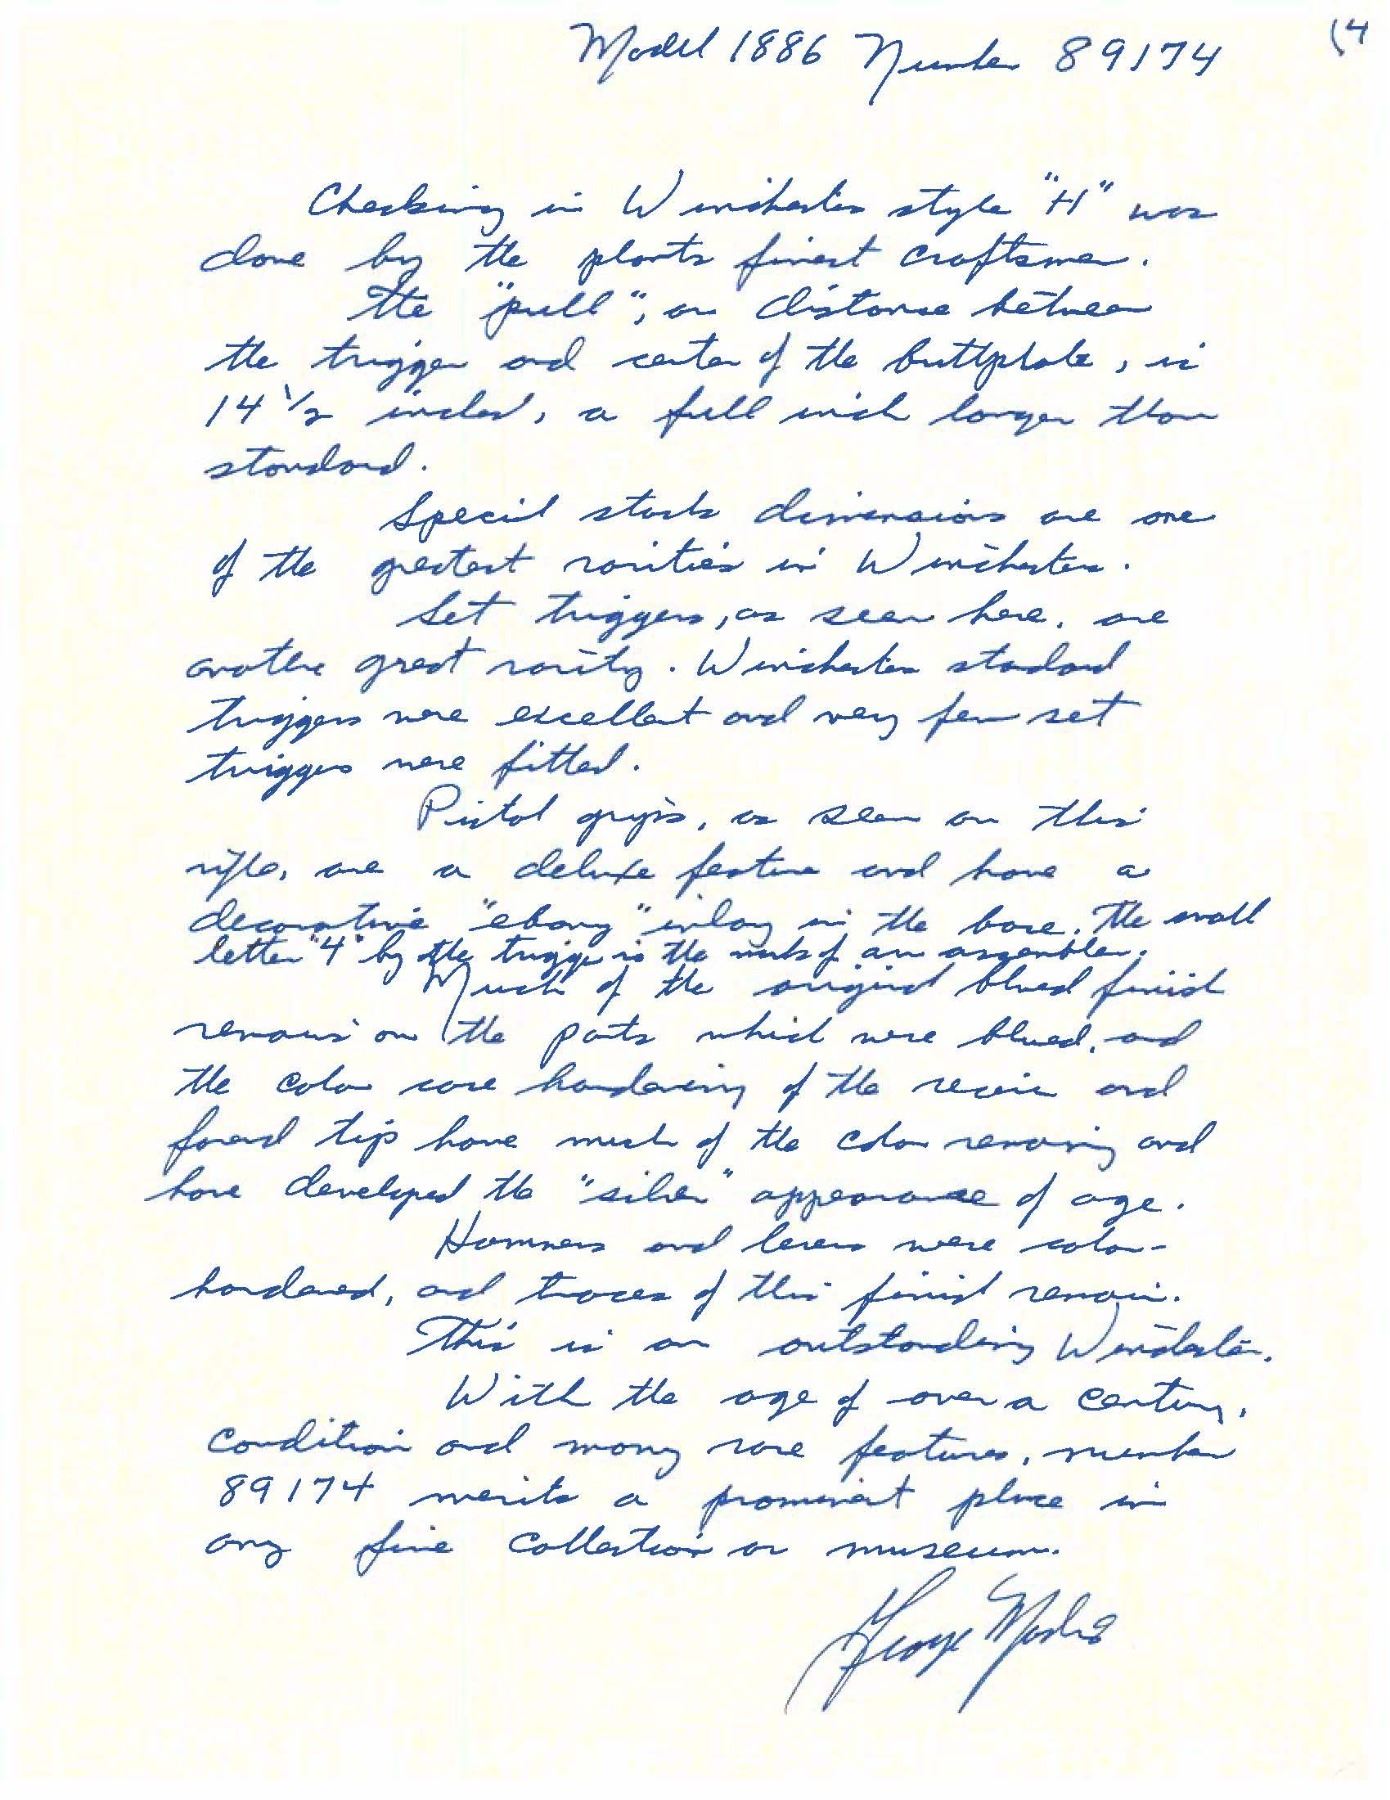 Model 1886 Number 89174
(4
Checking in Winchester style "H" was
done by the plants finest craftsmen.
The "pull", or distance between
the trigger and center of the buttplate, is
14 1/2 inches, a full inch longer than
standard.
Special stock dimensions are one
of the greatest rarities in Winchesters.
Set triggers, as seen here, are
another great rarity. Winchester standard
triggers were excellent and very few set
triggers were fitted.
Pistol grips, as seen on this
rifle, are a deluxe feature and have a
decorative "ebony" inlay in the base. The small
letter "4" by the trigger is the mark of an assembler.
Much of the original blued finish
remains on the parts which were blued, and
the color case hardening of the receiver and
forend tip have much of the color remaining and
have developed the "silver" appearance of age.
Hammers and levers were color-
hardened, and traces of this finish remain.
This is an outstanding Winchester.
With the age of over a century,
condition and many rare features, number
89174 merits a prominent place in
any fine collection or museum.
George Madis